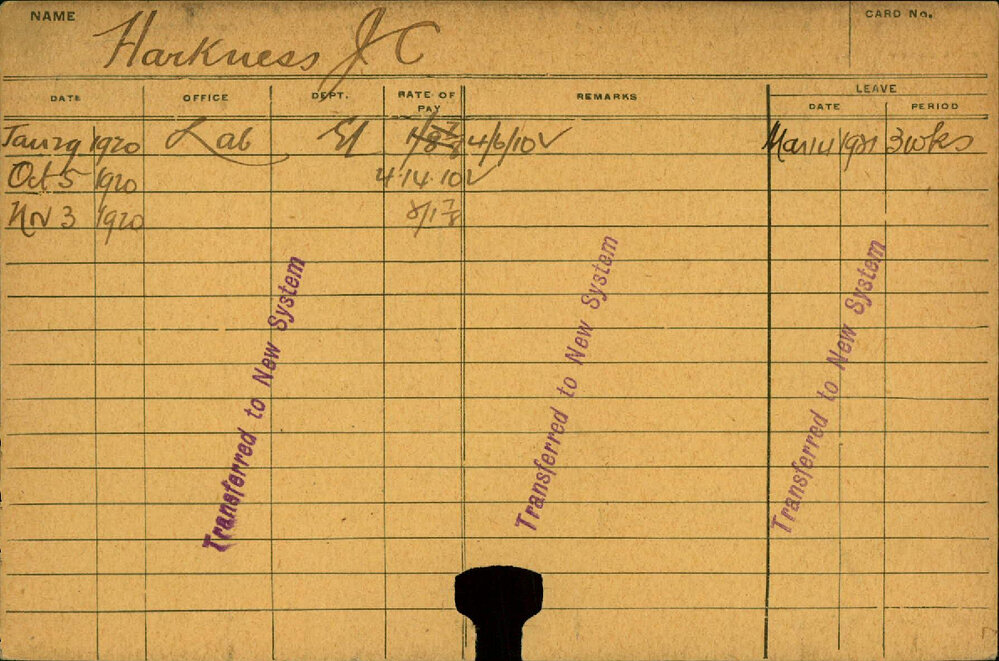 NAME Harkness J C CARD No.
DATE OFFICE DEPT. RATE OF PAY REMARKS LEAVE
DATE PERIOD
Jan 29 1920 Lab El 4/6/10 V Mar 14 1921 3 wks
Oct 5 1920 4.14.10 V
Nov 3 1920 2/1 7/8
Transferred to New System
Transferred to New System
Transferred to New System